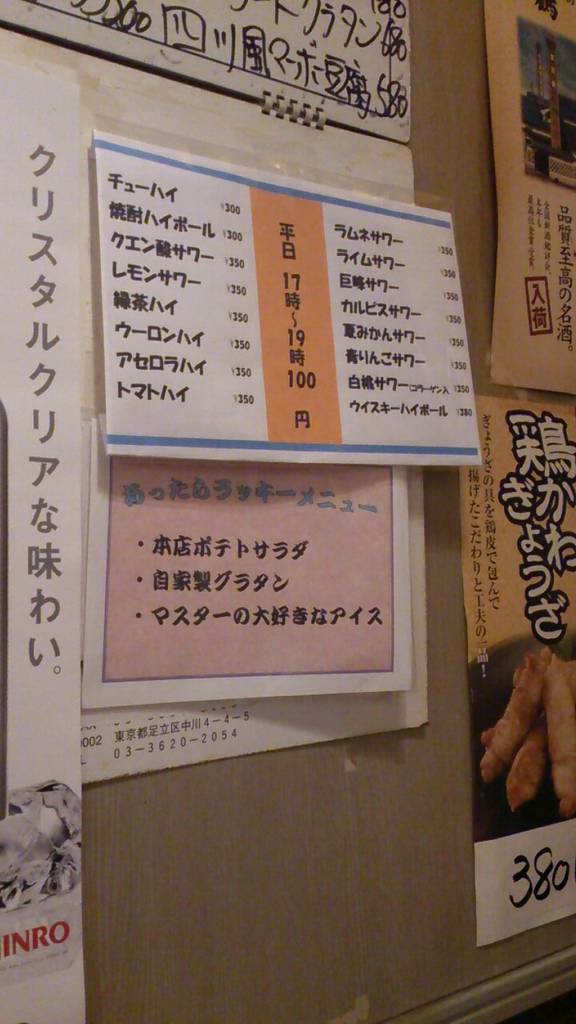 グラタン
四川風マーボ豆腐 580
クリスタルクリアな味わい。
INRO
チューハイ ¥300
焼酎ハイボール ¥300
クエン酸サワー ¥350
レモンサワー ¥350
緑茶ハイ ¥350
ウーロンハイ ¥350
アセロラハイ ¥350
トマトハイ ¥350
平日 17時~19時 100 円
ラムネサワー ¥350
ライムサワー ¥350
巨峰サワー ¥350
カルピスサワー ¥350
夏みかんサワー ¥350
青りんごサワー ¥350
白桃サワー(コラーゲン入) ¥350
ウイスキーハイボール ¥380
あったらラッキーメニュー
・本店ポテトサラダ
・自家製グラタン
・マスターの大好きなアイス
002 東京都足立区中川4-4-5
03-3620-2054
品質至高の名酒。
入荷
鶏かわ
一味ぎょうざ
ぎょうざの具を鶏皮で包んで
揚げたこだわりと工夫の一品!
380